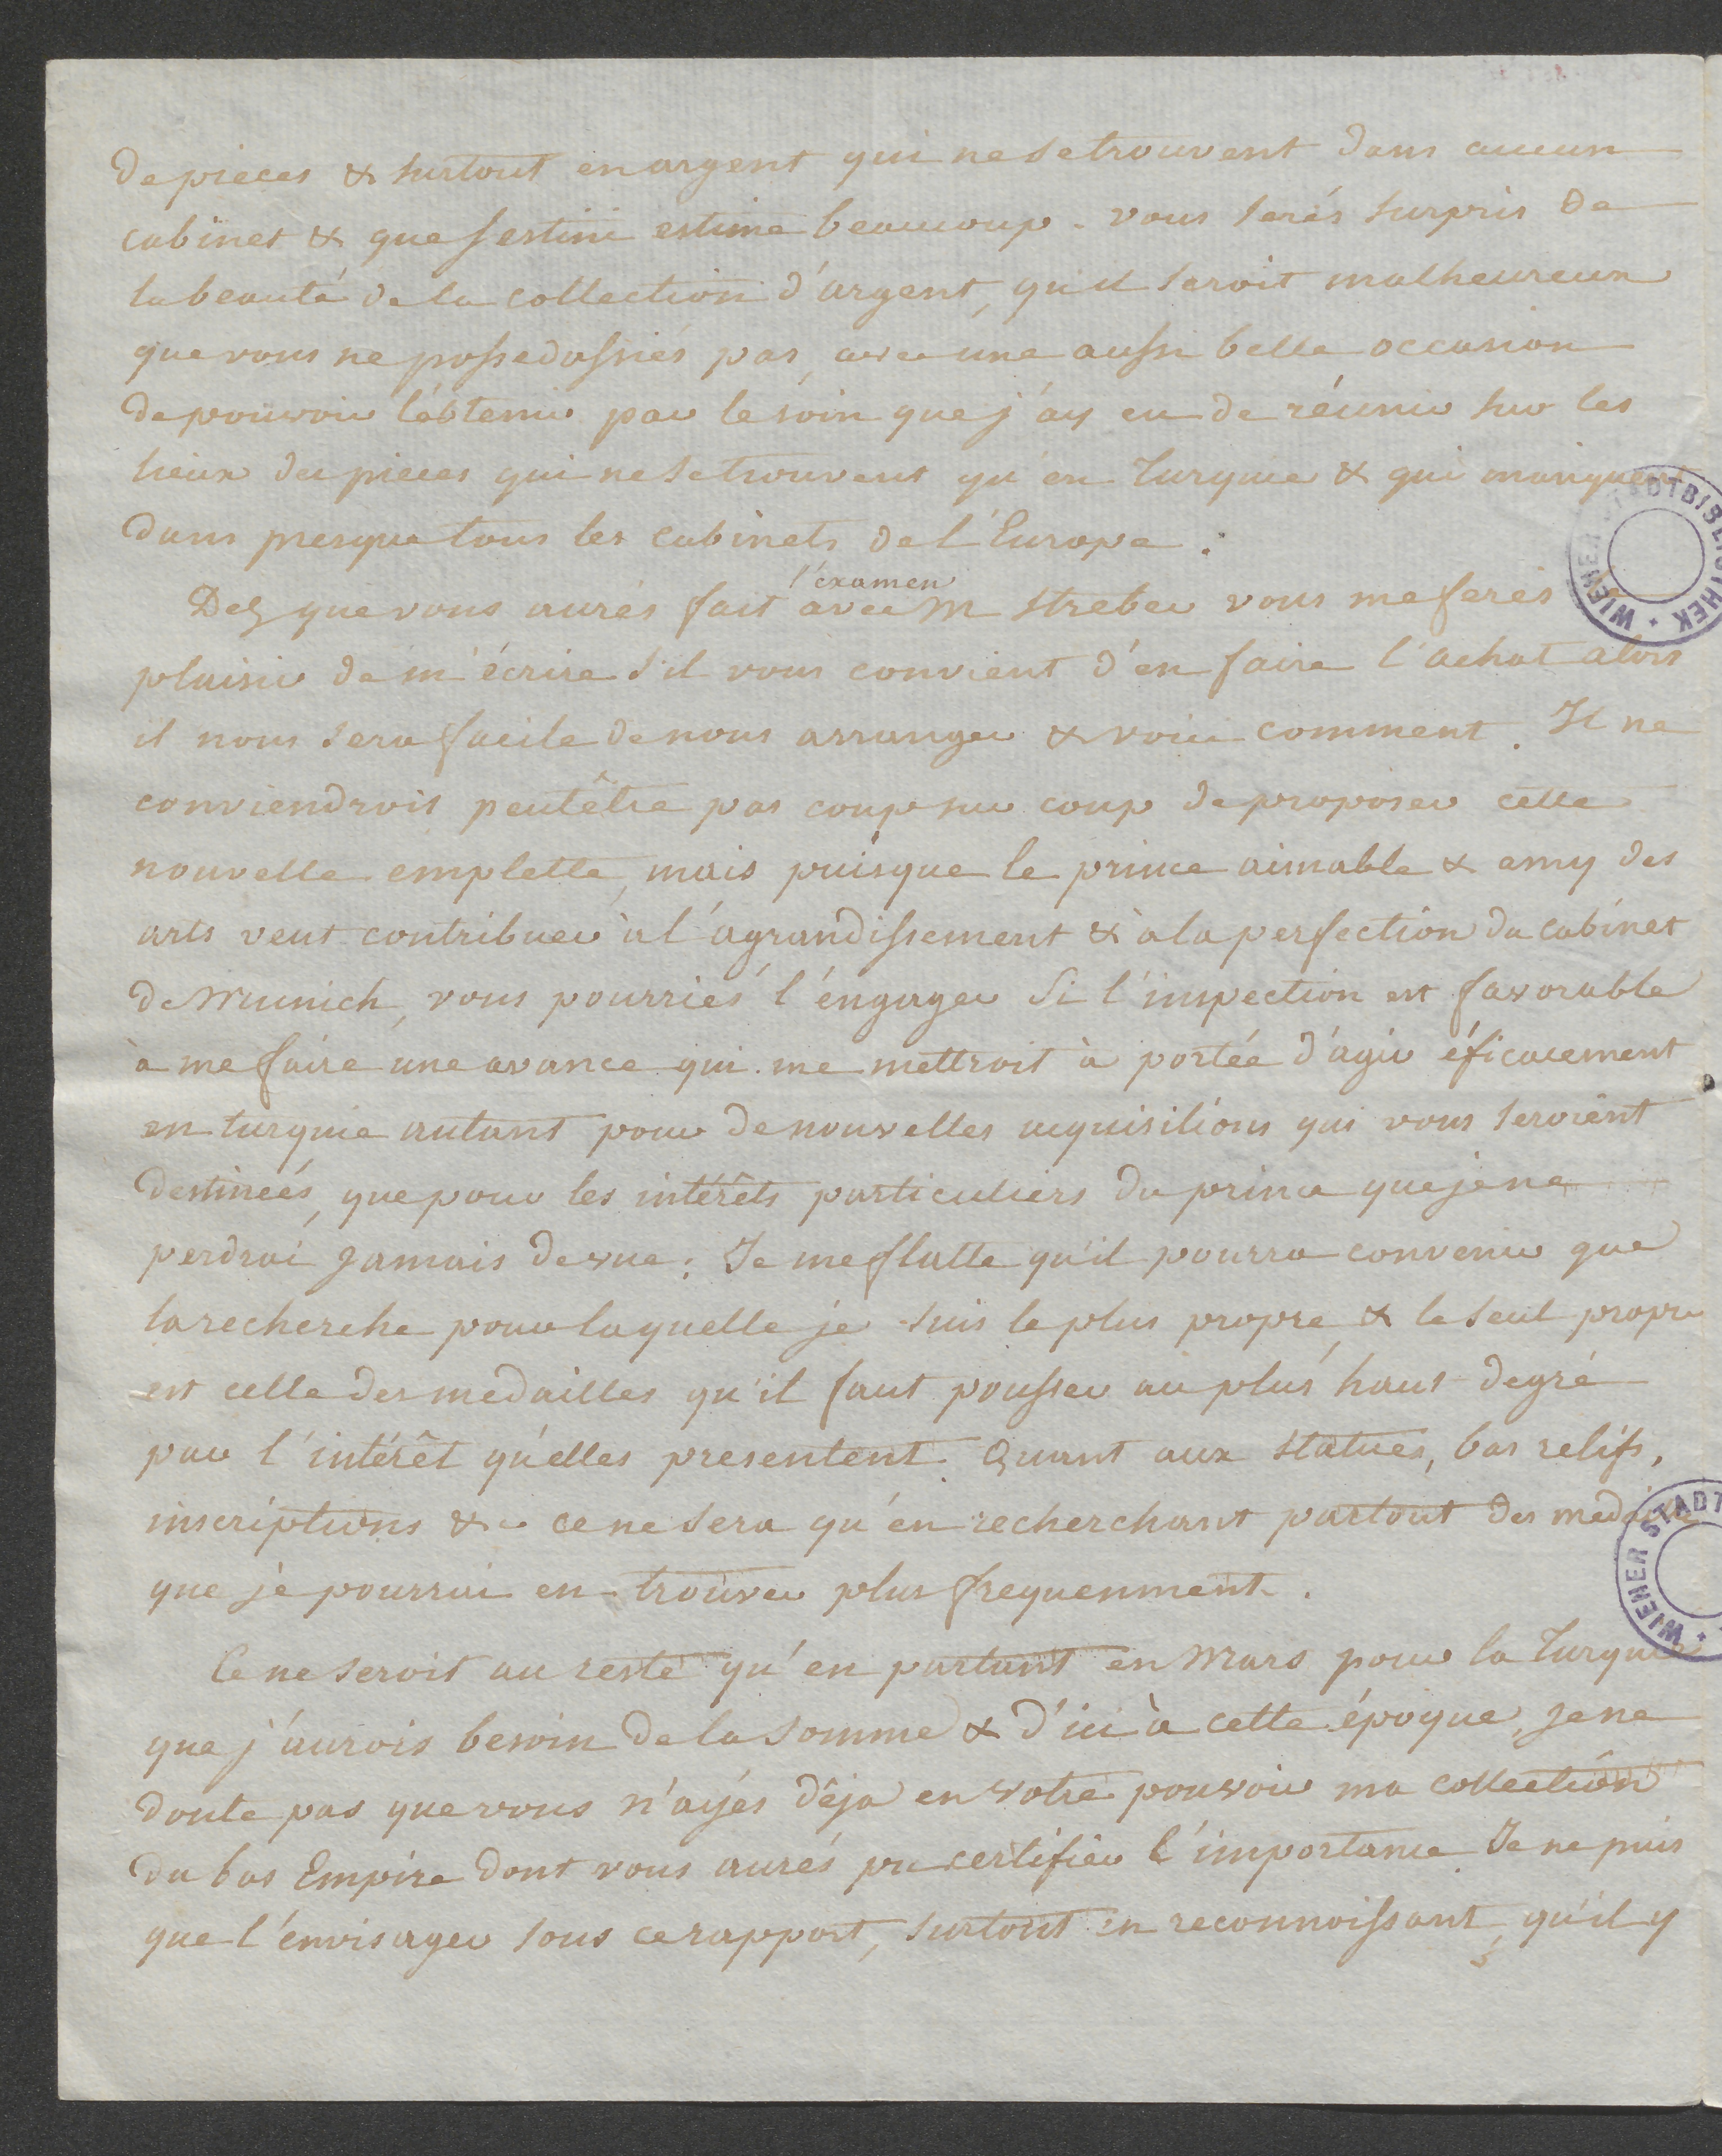 de pieces & surtout en argent qui ne se trouvent dans aucun
cabinet & que Sestini estime beaucoup. vous serés surpris de
la beauté de la collection d'argent, qu'il seroit malheureux
que vous ne possedassiés pas, avec une aussi belle occasion
de pouvoir l'obtenir par le soin que j'ay eu de réunir sur les
lieux des pieces qui ne se trouvent qu'en Turquie & qui manquent
dans presque tous les cabinets de l'Europe.
l'examen
Dez que vous aurés fait avec M Streber vous me ferés
plaisir de m'écrire s'il vous convient d'en faire l'achat alors
il nous sera facile de nous arranger & voici comment. Il ne
conviendroit peutêtre pas coup sur coup de proposer cette
nouvelle emplette, mais puisque le prince aimable & amy des
arts veut contribuer à l'agrandissement & à la perfection du cabinet
de Munich, vous pourriés l'éngager si l'inspection est favorable
à me faire une avance qui me mettroit à portée d'agir éficacement
en turquie autant pour de nouvelles acquisitions qui vous seroient
destineés, que pour les intérêts particuliers du prince que je ne
perdrai jamais de vue: Je me flatte qu'il pourra convenir que
la recherche pour laquelle je suis le plus propre, & le seul propre
est celle des medailles qu'il faut pousser au plus haut degré
par l'intérêt qu'elles presentent. Quant aux statues, bas reliefs,
inscriptions &c ce ne sera qu'en recherchant partout des medailles
que je pourrai en trouver plus frequenment.
Ce ne seroit au reste qu'en partant en Mars pour la Turquie
que j'aurois besoin de la somme & d'ici à cette époque, je ne
doute pas que vous n'ayés déja en votre pouvoir ma collection
du bas Empire dont vous aurés pu certifier l'importance. Je ne puis
que l'envisager sous ce rapport, surtout en reconnoissant, qu'il y
WIENER STADTBIBLIOTHEK
WIENER STADT